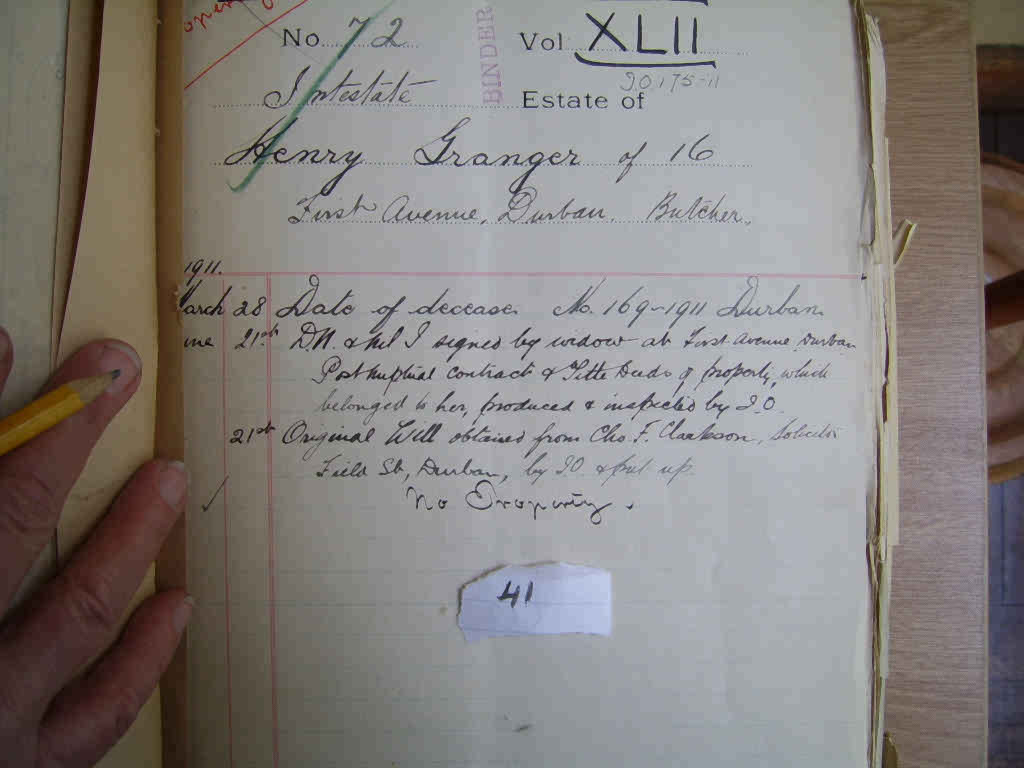 No 72 Vol XLII
BINDER
Intestate Estate of
Henry Granger of 16
First Avenue, Durban. Butcher.
1911.
March 28 Date of decease. No. 169-1911 Durban
June 21st D.N. & Nil I signed by widow at First Avenue Durban
Postnuptial contract & Title Deeds of property, which
belonged to her, produced & inspected by I.O.
21st Original Will obtained from Chs. F. Clarkson, Solicitor
Field St, Durban, by IO & put up.
No Property.
41